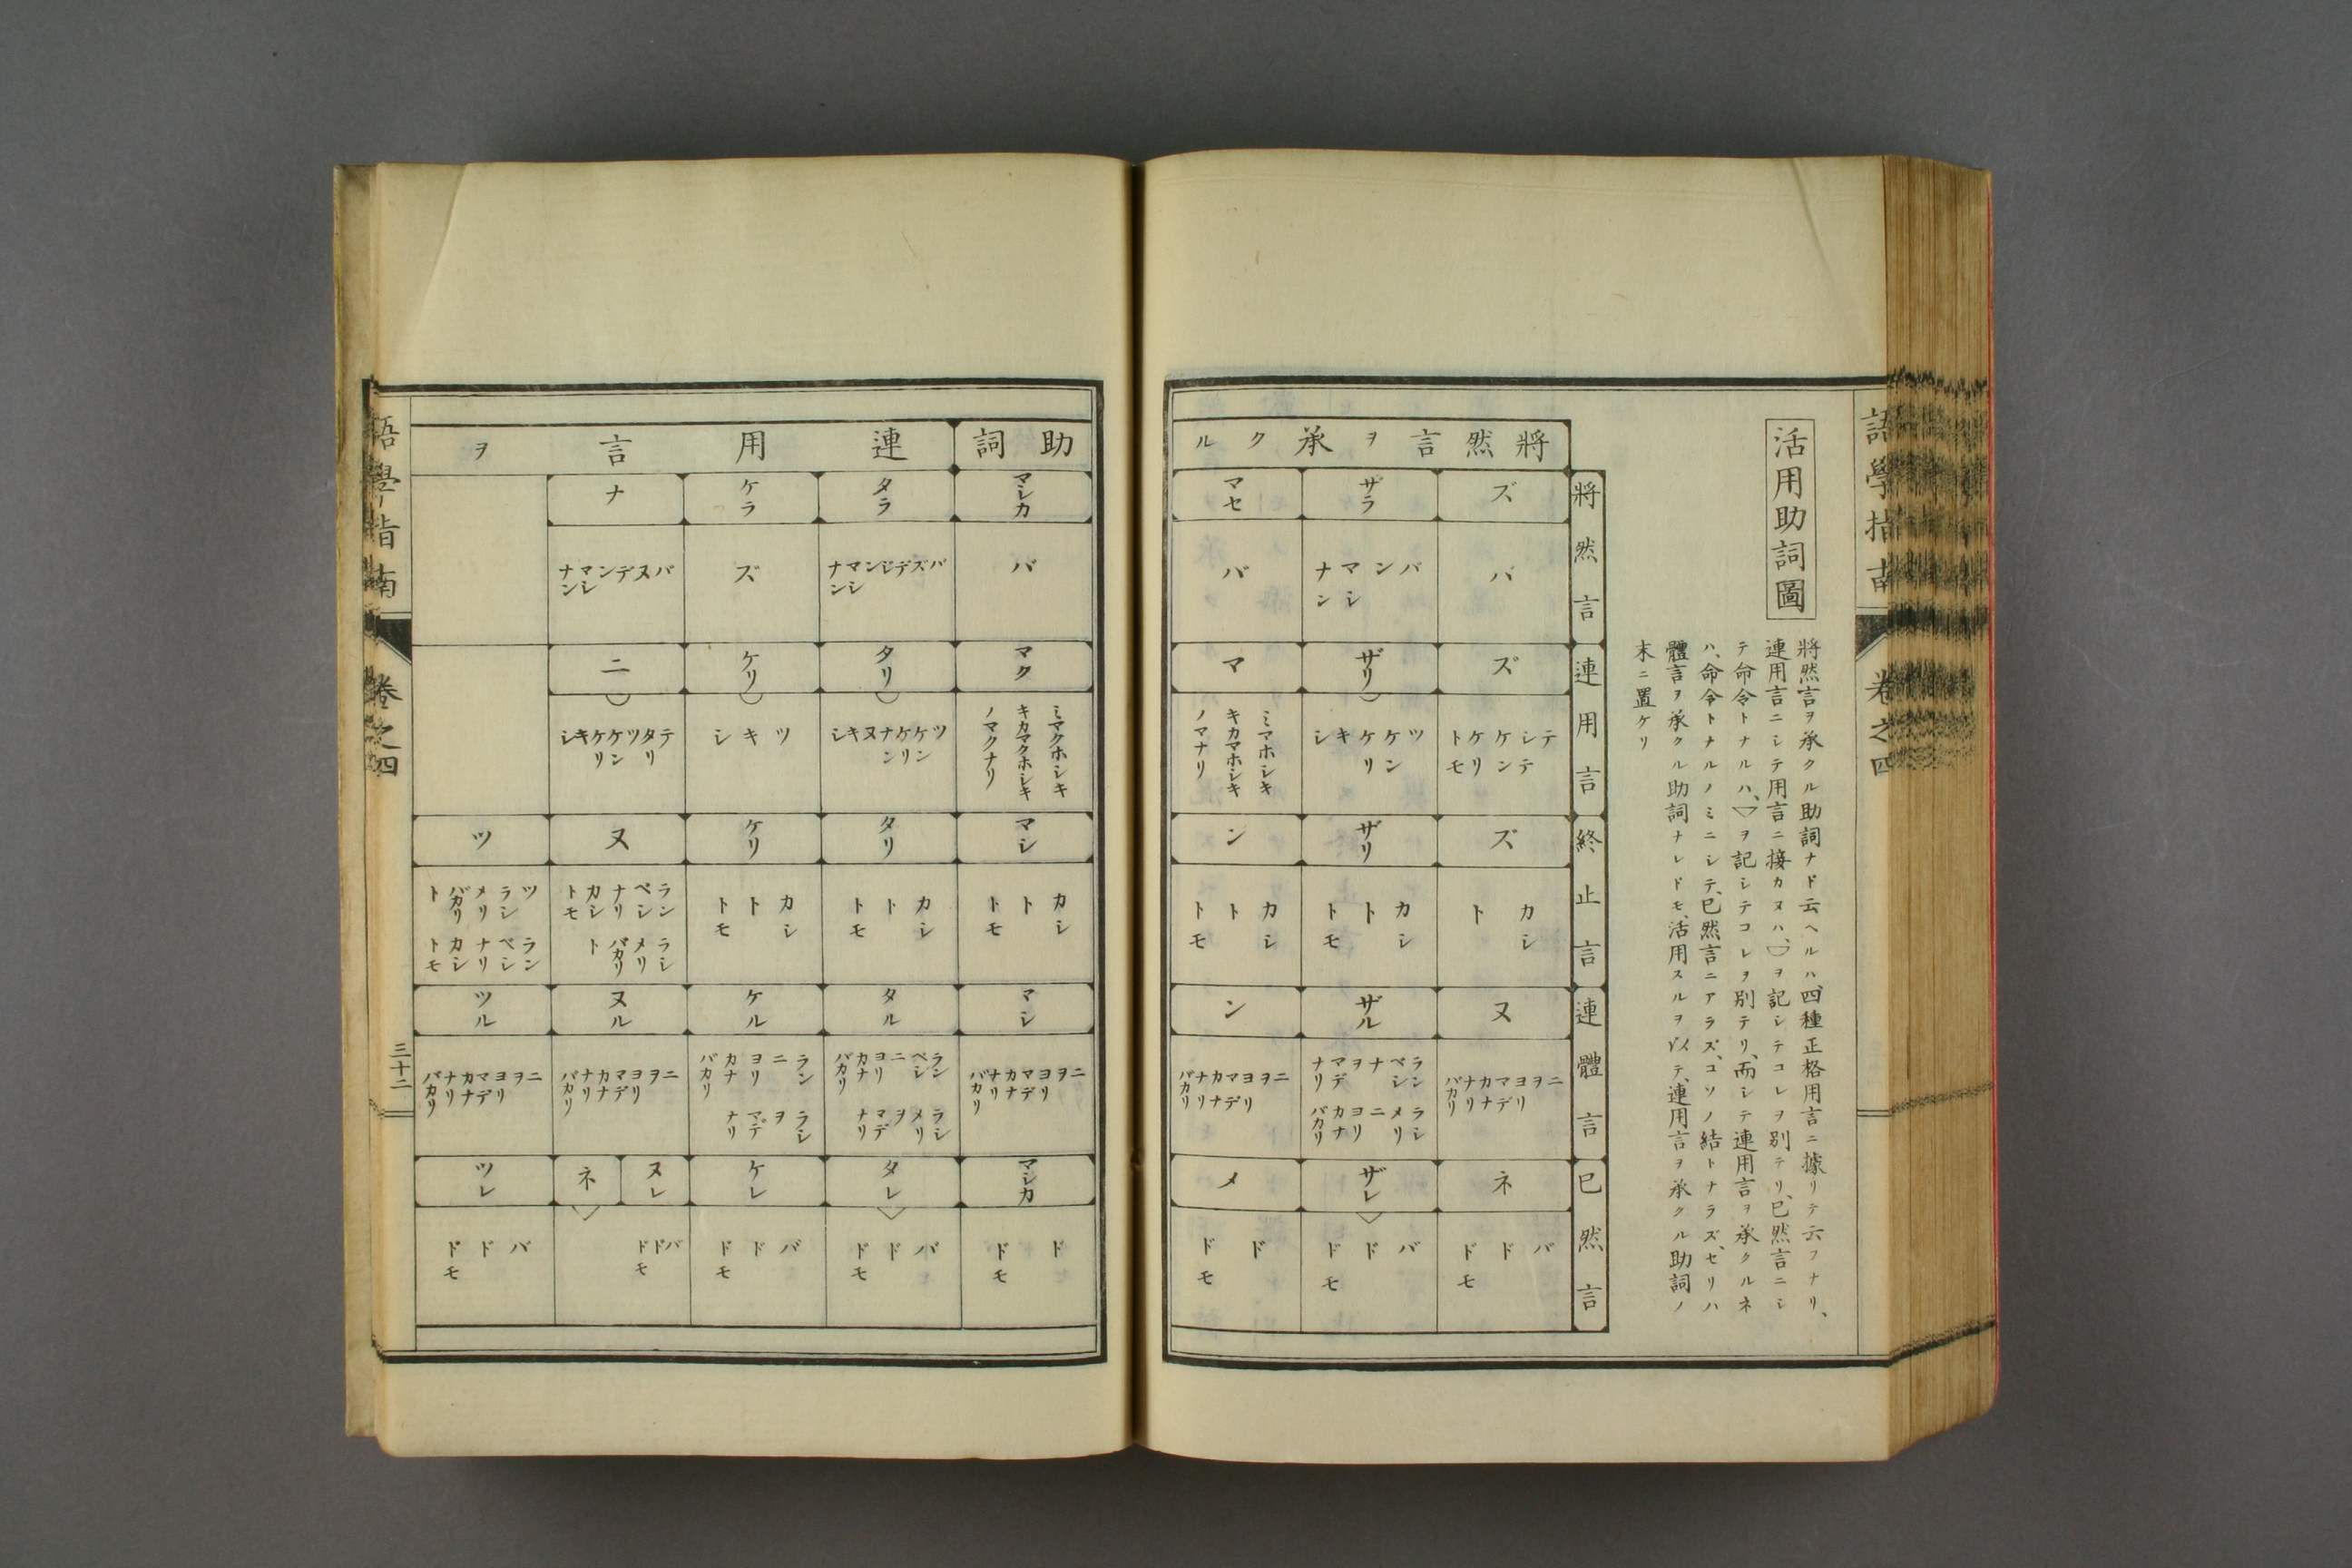 語學指南
卷之四
活用助詞圖
將然言ヲ承クル助詞ナド云ヘルハ、四種正格用言ニ據リテ云フナリ、
連用言ニシテ用言ニ接カヌハ、◡ヲ記シテコレヲ別テリ、已然言ニシ
テ命令トナルハ、﹀ヲ記シテコレヲ別テリ、而シテ連用言ヲ承クルネ
ハ、命令トナルノミニシテ、已然言ニアラズ、コソノ結トナラズ、セリハ
體言ヲ承クル助詞ナレドモ、活用スルヲ以テ、連用言ヲ承クル助詞ノ
末ニ置ケリ
將然言
連用言
終止言
連體言
已然言
將然言ヲ承クル
ズ
バ
ズ
テ
シテ
ケン
ケリ
トモ
ズ
カシ
ト
ヌ
ニ
ヲ
ヨリ
マデ
カナ
ナリ
バカリ
ネ
バ
ド
ドモ
ザラ
バ
ン
マシ
ナン
ザリ
ツ
ケン
ケリ
キ
シ
ザリ
カシ
ト
トモ
ザル
ラン
ベシ
ナ
ヲ
マデ
ナリ
ラシ
メリ
ニ
ヨリ
カナ
バカリ
ザレ
バ
ド
ドモ
マセ
バ
マ
ミマホシキ
キカマホシキ
ノマナリ
ン
カシ
ト
トモ
ン
ニ
ヲ
ヨリ
マデ
カナ
ナリ
バカリ
メ
ド
ドモ
助詞
マシカ
バ
マク
ミマクホシキ
キカマクホシキ
ノマクナリ
マシ
カシ
ト
トモ
マシ
ニ
ヲ
ヨリ
マデ
カナ
ナリ
バカリ
マシカ
ド
ドモ
連用言ヲ
タラ
バ
ズ
デ
ジ
ン
マシ
ナン
タリ
ツ
ケン
ケリ
ナン
ヌ
キ
シ
タリ
カシ
ト
トモ
タル
ラン
ベシ
ニ
ヨリ
カナ
バカリ
ラシ
メリ
ヲ
マデ
ナリ
タレ
バ
ド
ドモ
ケラ
ズ
ケリ
ツ
キ
シ
ケリ
カシ
ト
トモ
ケル
ラン
ニ
ヨリ
カナ
バカリ
ラシ
ヲ
マデ
ナリ
ケレ
バ
ド
ドモ
ナ
バ
ヌ
デ
ン
マシ
ナン
ニ
テ
タリ
ツ
ケン
ケリ
キ
シ
ヌ
ラン
ベシ
ナリ
カシ
トモ
ラシ
メリ
バカリ
ト
ヌル
ニ
ヲ
ヨリ
マデ
カナ
ナリ
バカリ
ヌレ
バ
ド
ドモ
ネ
ツ
ツ
ラシ
メリ
バカリ
ト
ラン
ベシ
ナリ
カシ
トモ
ツル
ニ
ヲ
ヨリ
マデ
カナ
ナリ
バカリ
ツレ
バ
ド
ドモ
語學指南
卷之四
三十二